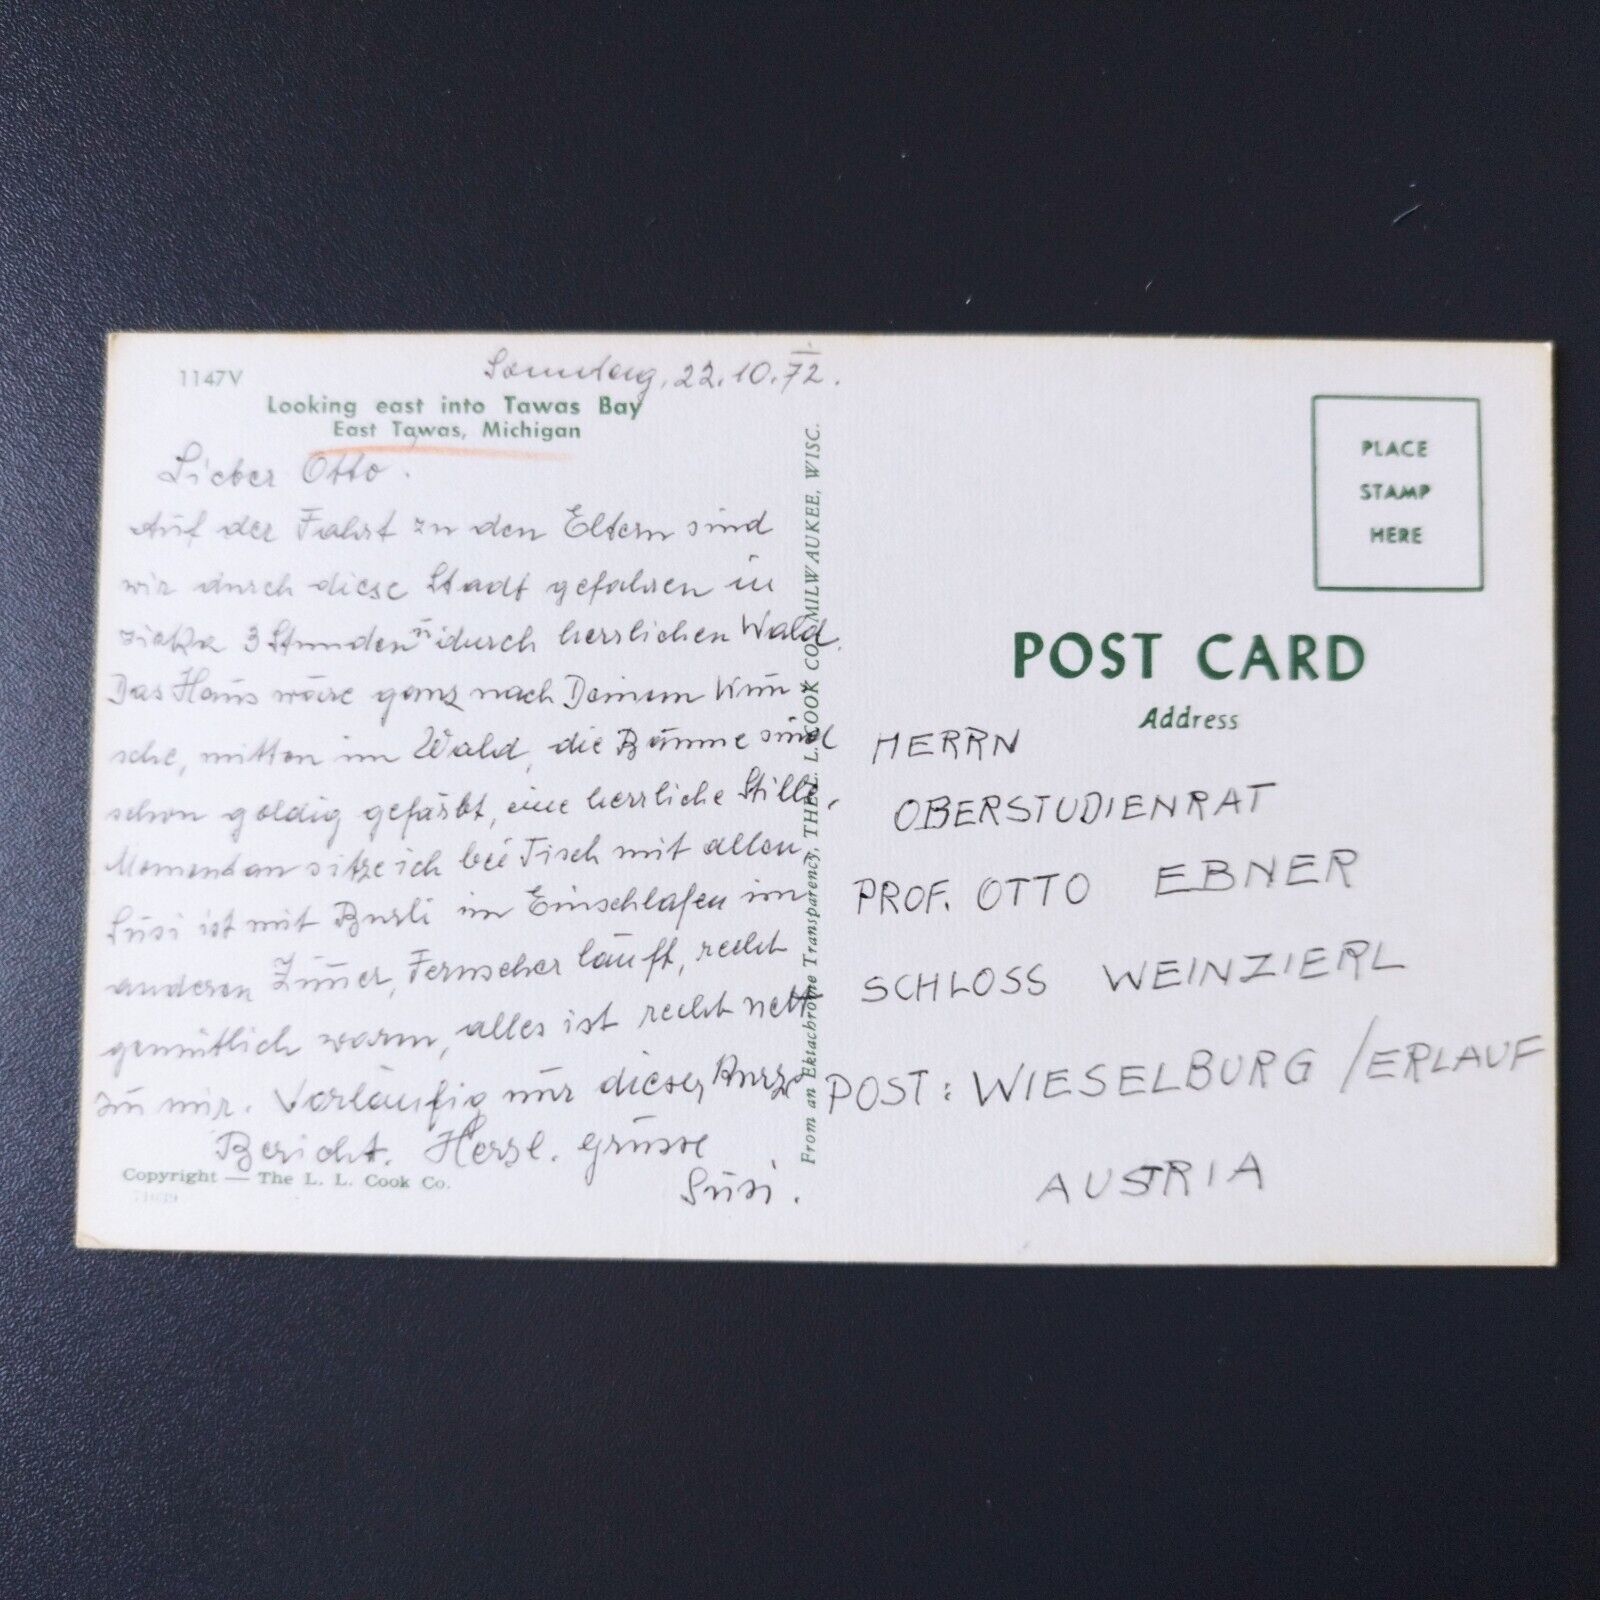 1147V
Sonntag, 22.10.72.
Looking east into Tawas Bay
East Tawas, Michigan
Lieber Otto.
Auf der Fahrt zu den Eltern sind
wir durch diese Stadt gefahren in
zirka 3 Stunden durch herrlichen Wald.
Das Haus wäre ganz nach Deinem Wun-
sche, mitten im Wald, die Bäume sind
schon goldig gefärbt, eine herrliche Stille.
Momentan sitze ich bei Tisch mit allen,
Susi ist mit Burli im Einschlafen im
anderen Zimmer, Fernseher läuft, recht
gemütlich warm, alles ist recht nett
zu mir. Vorläufig nur dieser kurze
Bericht. Herzl. Grüsse
Susi.
Copyright — The L. L. Cook Co.
From an Ektachrome Transparency, THE L. L. COOK CO. MILWAUKEE, WISC.
PLACE
STAMP
HERE
POST CARD
Address
HERRN
OBERSTUDIENRAT
PROF. OTTO EBNER
SCHLOSS WEINZIERL
POST: WIESELBURG / ERLAUF
AUSTRIA